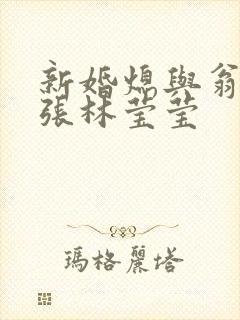 新婚熄與翁
張林莹莹
瑪格麗塔